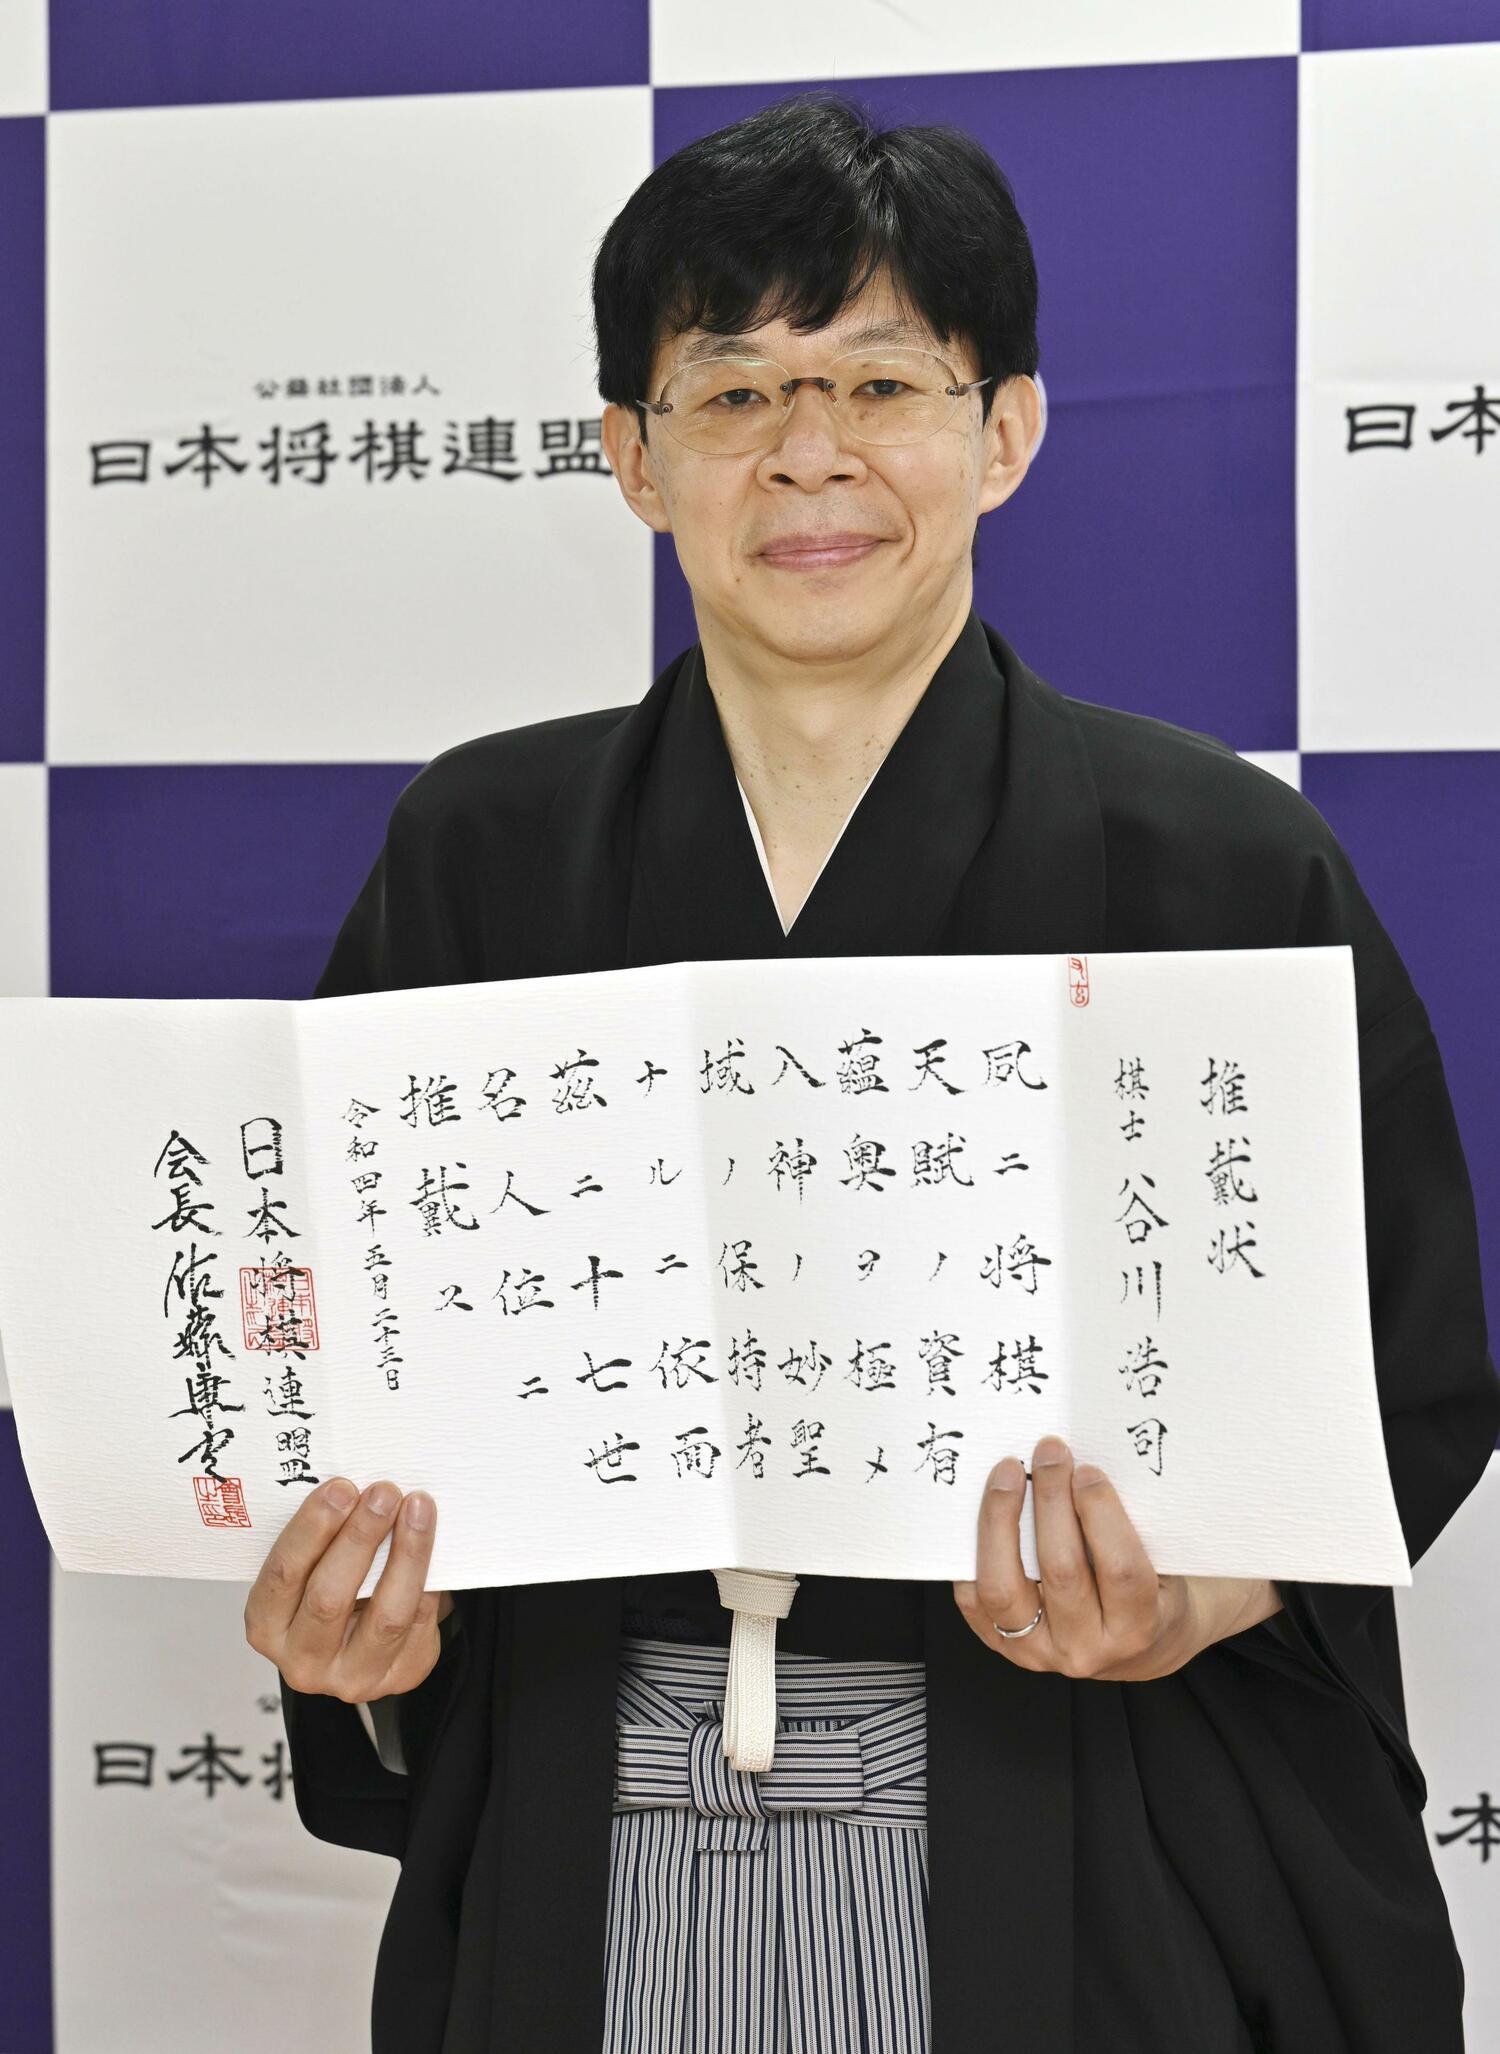 公益社団法人
日本将棋連盟
日本
推戴状
棋士 谷川浩司
夙ニ将棋ニ
天賦ノ資有リ
蘊奥ヲ極メ
入神ノ妙聖
域ノ保持者
ナルニ依而
茲ニ十七世
名人位ニ
推戴ス
令和四年五月二十三日
日本将棋連盟
会長 佐藤康光
公
日本将
本